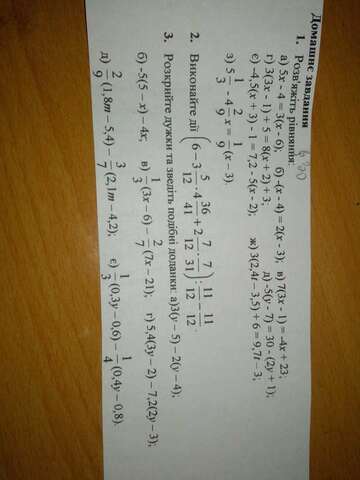 Домашнє завдання
1. Розв'яжіть рівняння:
а) 5x - 4 = 3(x - 6); б) -(x - 4) = 2(x - 3); в) 7(3x - 1) = -4x + 23;
г) 3(3x - 1) + 5 = 8(x + 2) + 3; д) -5(y - 7) = 30 - (2y + 1);
є) -4,5(x + 3) - 1 = 7,2 - 3(x - 2); ж) 3(2,4t - 3,5) + 6 = 9,7t - 3;
з) 5 1/3 - 4 2/9 x = 1/9 (x - 3).
2. Виконайте дії (6 - 3 5/12 · 4 36/41 + 2 7/12 · 7/31) : 11/12 - 11/12.
3. Розкрийте дужки та зведіть подібні доданки: а)3(y – 5) – 2(y – 4);
б) -5(5 – x) – 4x; в) 1/3 (3x – 6) – 2/7 (7x – 21); г) 5,4(3y – 2) – 7,2(2y – 3);
д) 2/9 (1,8m – 5,4) – 3/7 (2,1m – 4,2); є) 1/3 (0,3y – 0,6) – 1/4 (0,4y – 0,8).